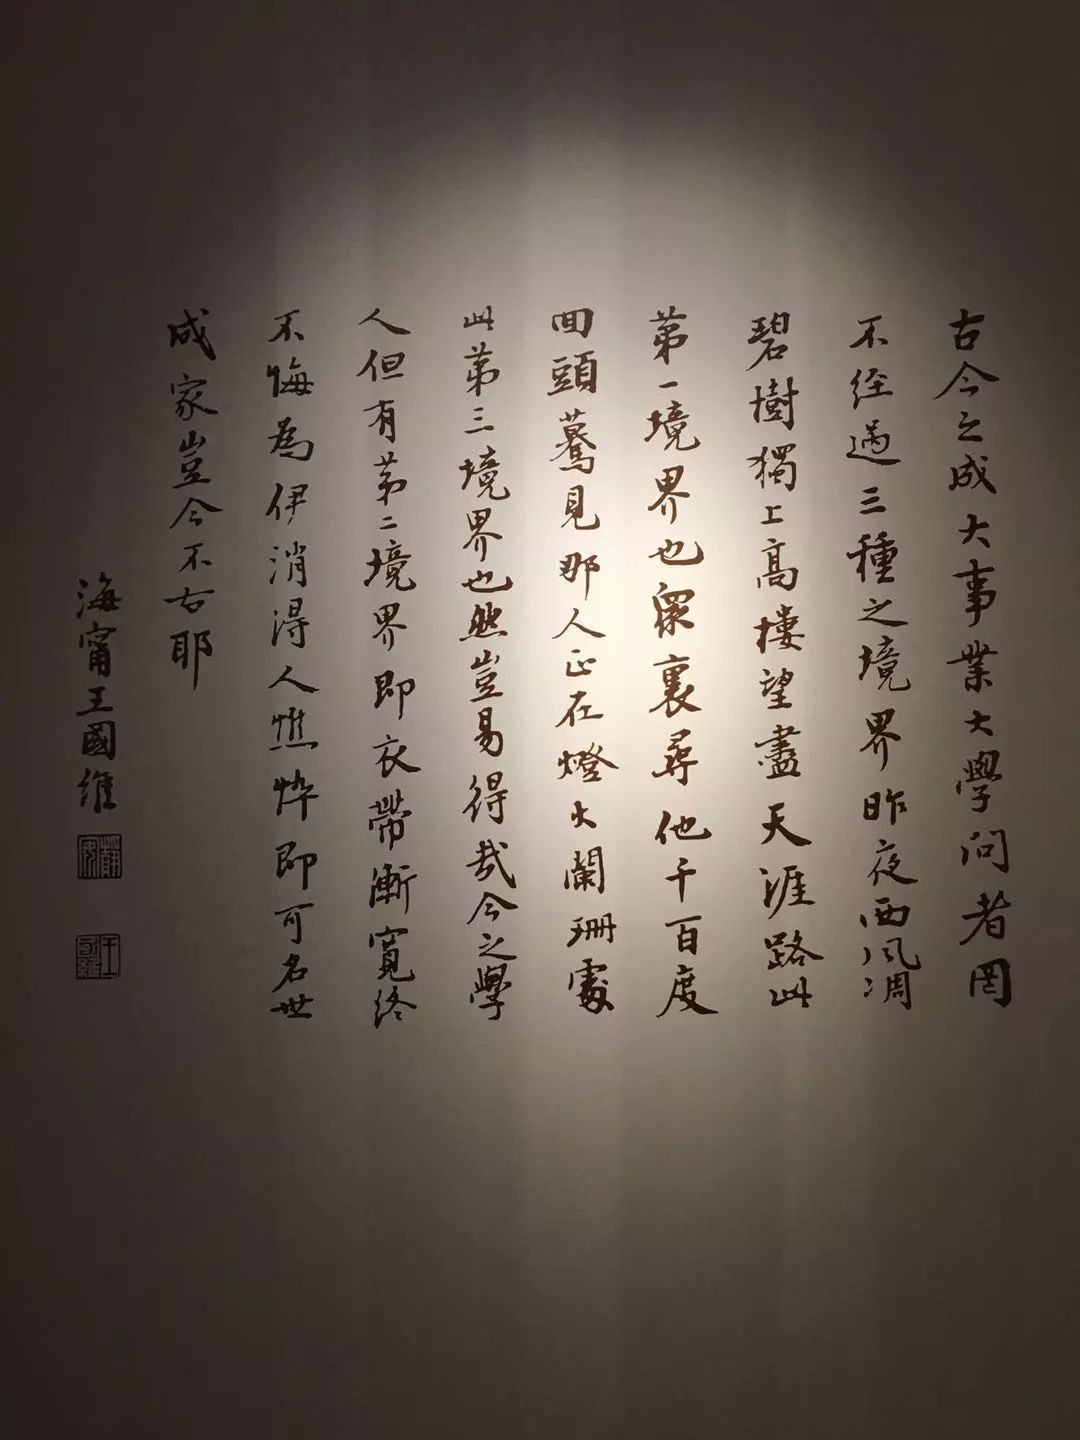 古今之成大事業大學問者罔
不经過三種之境界昨夜西風凋
碧樹獨上高樓望盡天涯路此
第一境界也衆裏尋他千百度
回頭驀見那人正在燈火闌珊處
此第三境界也然豈易得哉今之學
人但有第二境界即衣帶漸寬终
不悔為伊消得人憔悴即可名世
成家豈今不古耶
海甯王國維
靜安
王國維